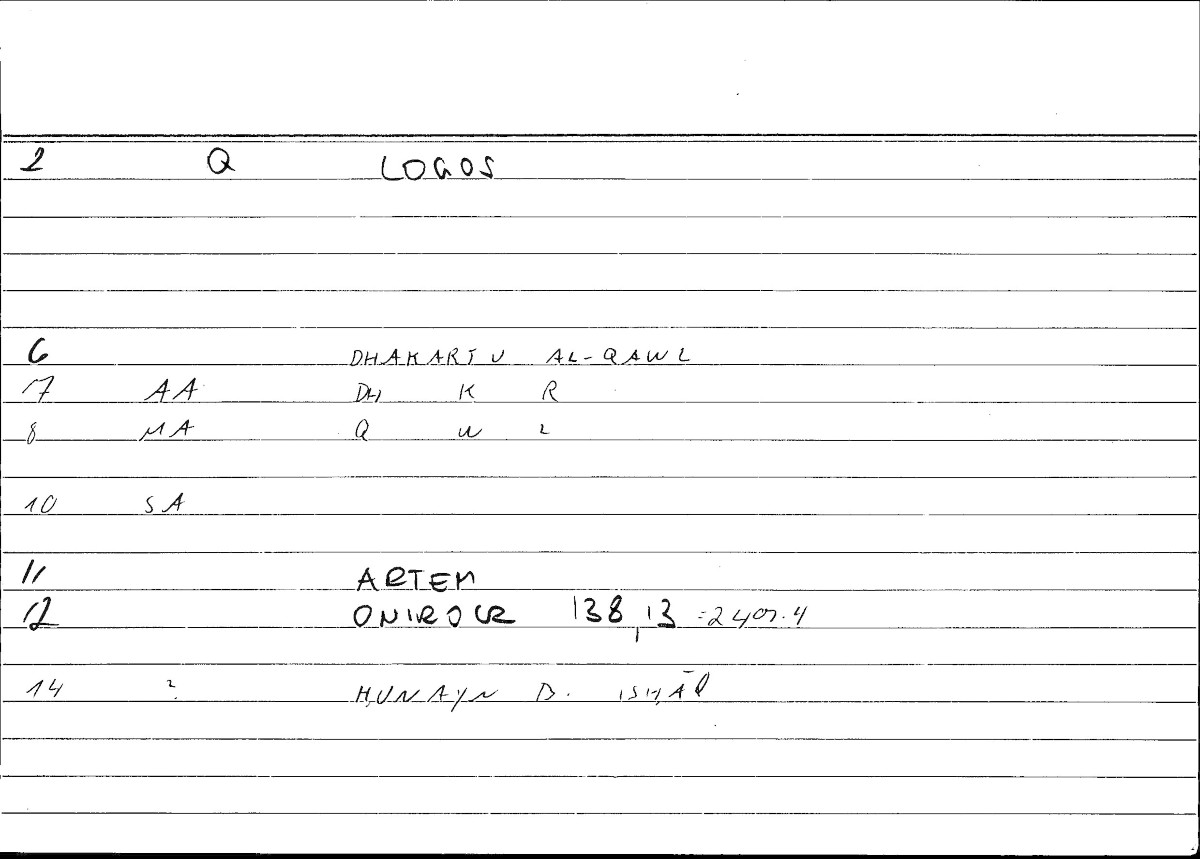 2 Q LOGOS
6 DHAKARTU AL-QAWL
7 AA DH K R
8 MA Q W L
10 SA
11 ARTEM
12 ONIROCR 138,13 =240,4
14 ? ḤUNAYN B. ISḤĀQ